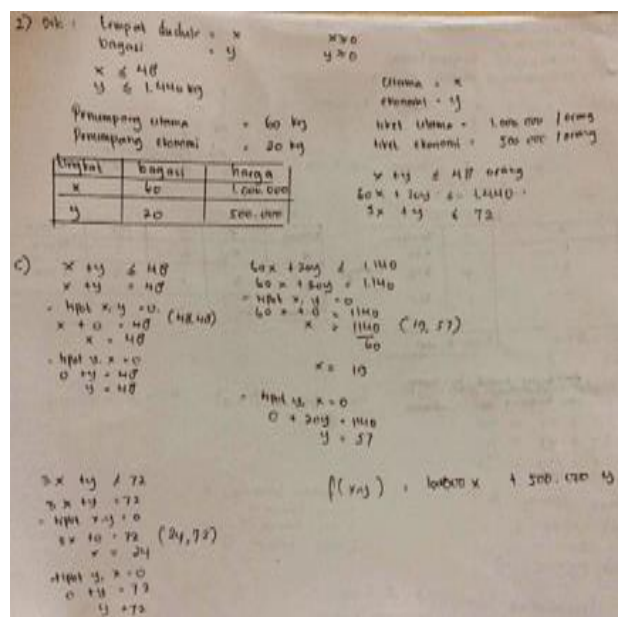 2) Dik : tempat duduk = x
bagasi = y
x ≥ 0
y ≥ 0
x ≤ 48
y ≤ 1.440 kg
Utama = x
ekonomi = y
Penumpang utama = 60 kg
Penumpang ekonomi = 20 kg
tiket utama = 1.000.000 / orang
tiket ekonomi = 500.000 / orang
tingkat bagasi harga
x 60 1.000.000
y 20 500.000
x + y ≤ 48 orang
60x + 20y ≤ 1.440
3x + y ≤ 72
c) x + y ≤ 48
x + y = 48
= tipot x, y = 0
x + 0 = 48 (48,48)
x = 48
= tipot y, x = 0
0 + y = 48
y = 48
60x + 20y ≤ 1.140
60x + 20y = 1.140
= tipot x, y = 0
60x + 0 = 1140
x = 1140/60 (19, 57)
x = 19
= tipot y, x = 0
0 + 20y = 1140
y = 57
3x + y ≤ 72
3x + y = 72
= tipot x, y = 0
3x + 0 = 72 (24,72)
x = 24
= tipot y, x = 0
0 + y = 72
y = 72
f(x,y) = x + 500.000 y